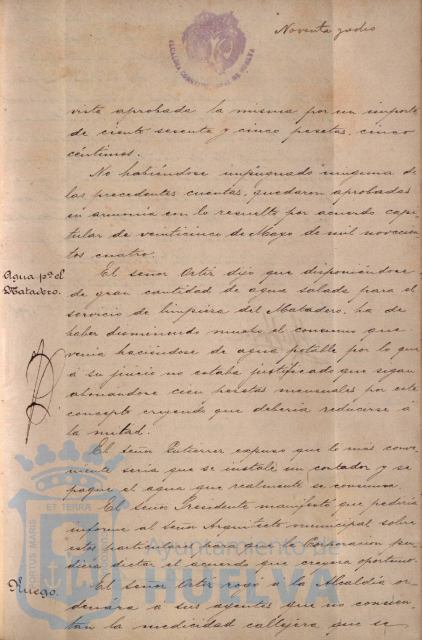 Noventa y ocho
ALCALDIA CONSTITUCIONAL DE HUELVA
viste aprobada la misma por un importe
de ciento sesenta y cinco pesetas, cinco
céntimos.
No habiéndose impugnado ninguna de
las precedentes cuentas, quedaron aprobadas
en armonía con lo resuelto por acuerdo capi
tular de veinticinco de Mayo de mil novecien
tos cuatro.
Agua pª el
Matadero.
El señor Ortiz dijo que disponiéndose
de gran cantidad de agua salada para el
servicio de limpieza del Matadero, ha de
haber disminuido mucho el consumo que
venía haciéndose de agua potable por lo que
á su juicio no estaba justificado que sigan
abonandose cien pesetas mensuales por este
concepto creyendo que debería reducirse á
la mitad.
El señor Gutierrez expuso que lo más conve
niente sería que se instale un contador y se
pague el agua que realmente se consuma.
El señor Presidente manifestó que pediría
informe al señor Arquitecto municipal sobre
este particular para que la Corporación pu
diera dictar el acuerdo que creyera oportuno.
Ruego.
El señor Ortiz rogó á la Alcaldía or
denara á sus agentes que no consien
tan la mendicidad callejera que se
PORTUS MARIS ET TERRAE
Ayuntamiento de
HUELVA